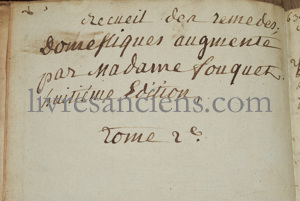 Recueil des remedes
Domestiques augmenté
par Madame fouquet
livresanciens.com
huitième Edition,
Tome 2e.